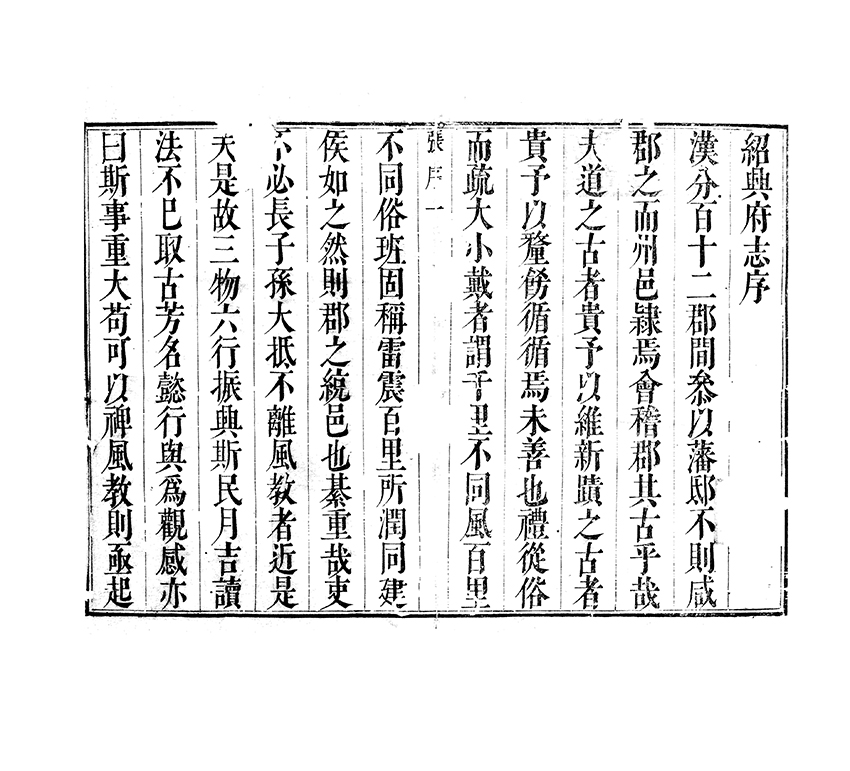 紹興府志序
漢分百十二郡間叅以藩邸不則咸
郡之而州邑隷焉會稽郡其古乎哉
夫道之古者貴予以維新蹟之古者
貴予以釐飭循循焉未善也禮從俗
而疏大小戴者謂千里不同風百里
張序一
不同俗班固稱雷震百里所潤同建
侯如之然則郡之統邑也綦重哉吏
不必長子孫大抵不離風教者近是
夫是故三物六行振興斯民月吉讀
法不已取古芳名懿行與爲觀感亦
曰斯事重大苟可以裨風教則亟起